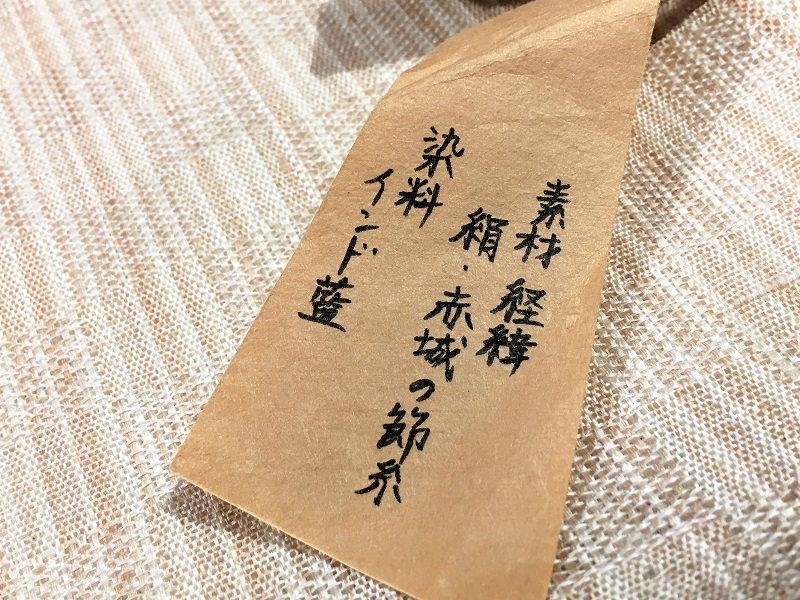 素材 経緯
絹・赤城の節糸
染料
インド藍